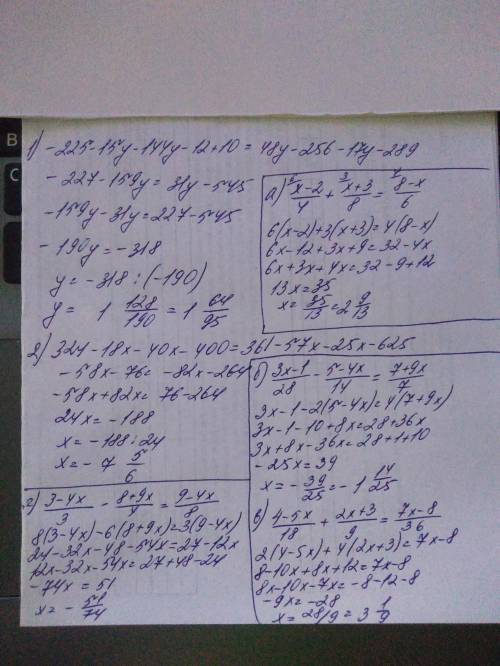 1) -225-15y-144y-12+10 = 48y-256-17y-289
-227-159y=31y-545
-159y-31y=227-545
-190y=-318
y=-318:(-190)
y= 1 128/190 = 1 64/95
а) x-2/4 + x+3/8 = 8-x/6
6(x-2)+3(x+3)=4(8-x)
6x-12+3x+9=32-4x
6x+3x+4x=32-9+12
13x=35
x=35/13=2 9/13
2) 324-18x-40x-400=361-57x-25x-625
-58x-76=-82x-264
-58x+82x=76-264
24x=-188
x=-188:24
x=-7 5/6
б) 3x-1/28 - 5-4x/14 = 7+9x/7
3x-1-2(5-4x)=4(7+9x)
3x-1-10+8x=28+36x
3x+8x-36x=28+1+10
-25x=39
x=-39/25=-1 14/25
г) 3-4x/3 - 8+9x/4 = 9-4x/8
8(3-4x)-6(8+9x)=3(9-4x)
24-32x-48-54x=27-12x
12x-32x-54x=27+48-24
-74x=51
в) 4-5x/18 + 2x+3/9 = 7x-8/36
2(4-5x)+4(2x+3)=7x-8
8-10x+8x+12=7x-8
8x-10x-7x=-8-12-8
-9x=-28
x=28/9=3 1/9